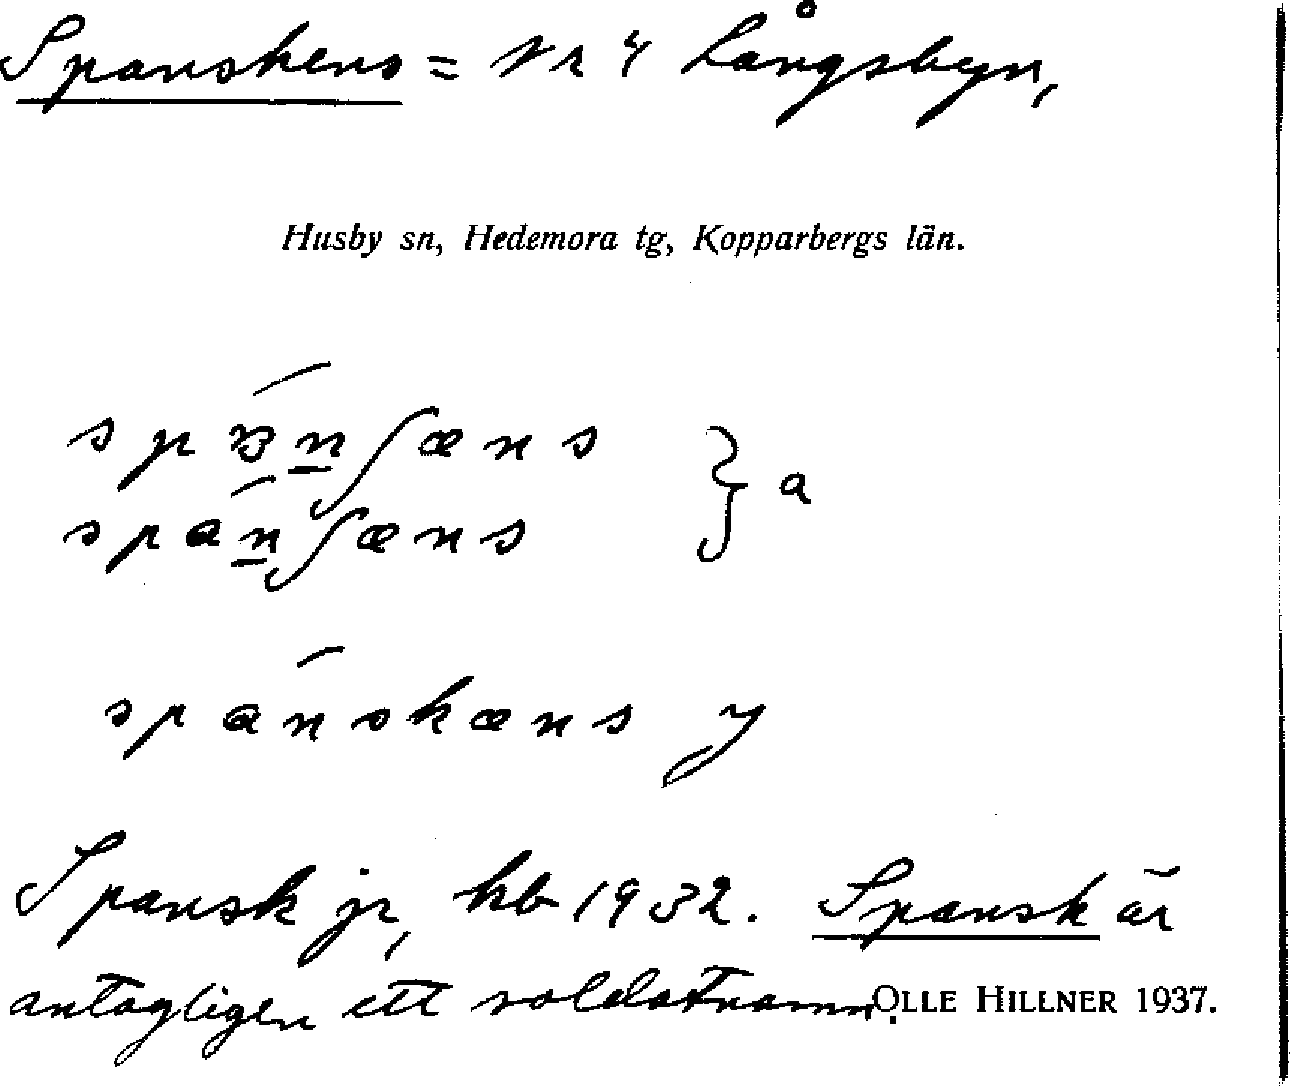 Spanskens = Nr 4 Långsbyn,
Husby sn, Hedemora tg, Kopparbergs län.
spɞ́n̲ʃæns
spán̲ʃæns } a
spánskæns y
Spansk jr, kb 1932. Spansk är
antagligen ett soldatnamn.
OLLE HILLNER 1937.